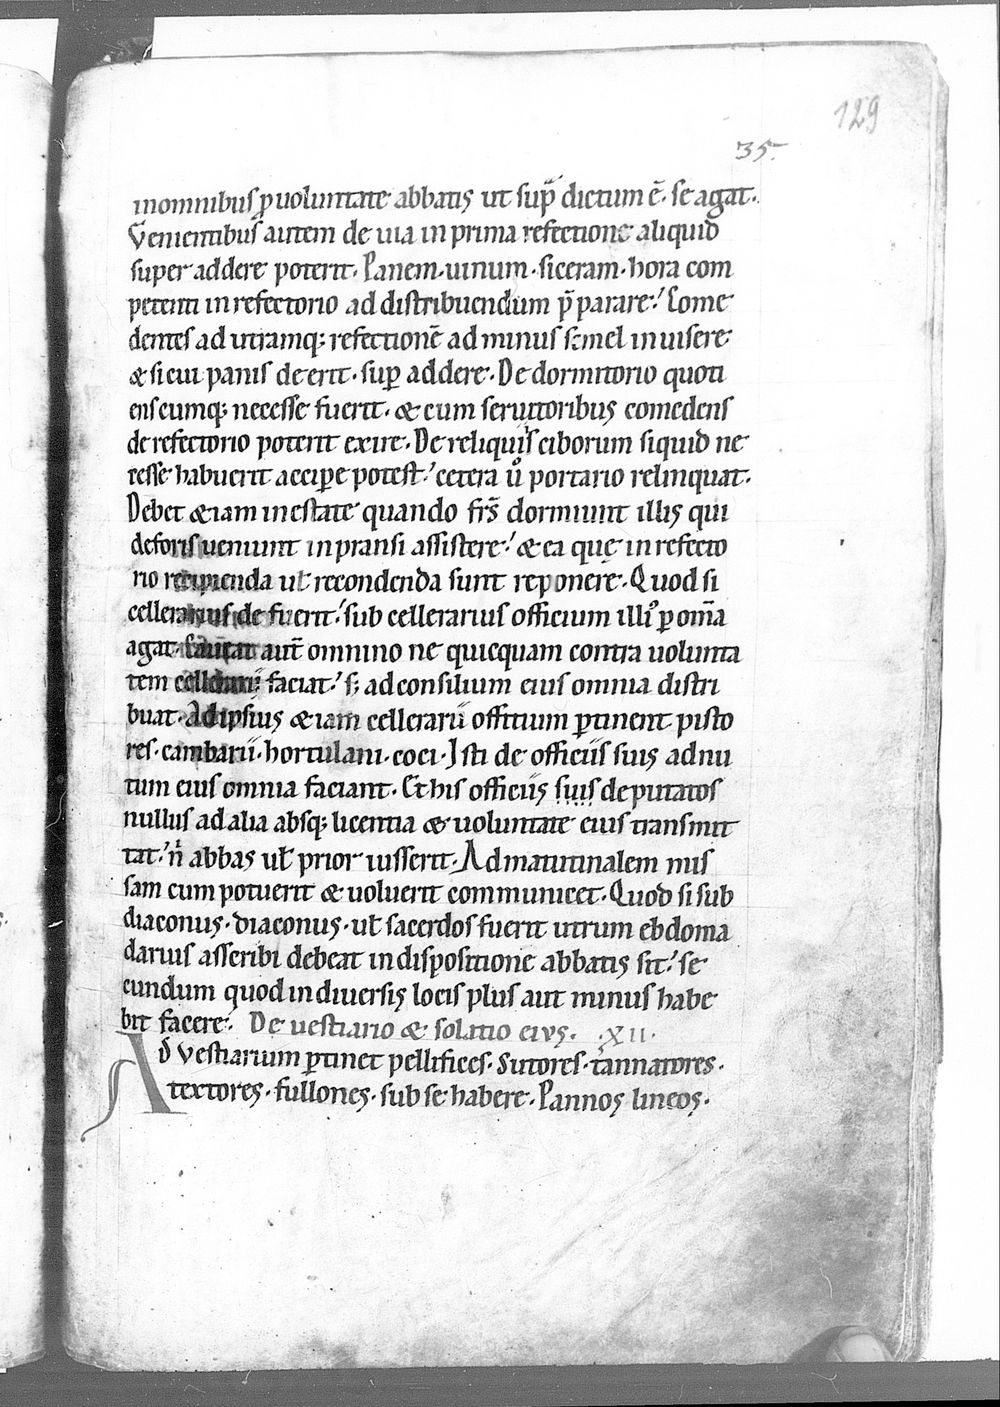 129
35.
in omnibus ꝑ uoluntate abbatis ut sup̄ dictum ē. se agat.
Venientibus autem de uia in prima refectione aliquid
super addere poterit. Panem. uinum. siceram. hora com
petenti in refectorio ad distribuendum p̄parare. Come
dentes ad utramq; refectionē ad minus semel inuisere
& si cui panis deerit. suꝑ addere. De dormitorio quoti
enscumq; necesse fuerit. & cum seruitoribus comedens
de refectorio poterit exire. De reliquiis ciborum siquid ne
cesse habuerit acciꝑe potest. cetera ů portario relinquat.
Debet &iam in estate quando frs̄ dormiunt illis qui
deforis ueniunt inpransi assistere. & ea quę in refecto
rio recipienda ut recondenda sunt reponere. Quod si
cellerarius de fuerit. sub cellerarius officium illiꝰ ꝑ om̄a
agat. aut̄ omnino ne quicquam contra uolunta
tem cellerarii faciat. s; ad consilium eius omnia distri
buat. Ad ipsius &iam cellerarii offitium ꝑtinent pisto
res. cambarii. hortulani. coci. Isti de officiis suis ad nu
tum eius omnia faciant. Et his officiis suis deputatos
nullus ad alia absq; licentia & uoluntate eius transmit
tat. n̍ abbas ut̄ prior iusserit. Ad matutinalem mis
sam cum potuerit & uoluerit communicet. Quod si sub
diaconus. diaconus. ut̄ sacerdos fuerit utrum ebdoma
darius asscribi debeat in dispositione abbatis sit. se
cundum quod in diuersis locis plus aut minus habe
bit facere. De uestiario & solatio eius. .XII.
Ad Vestiarium ꝑtinet pellifices. sutores. tannatores.
textores. fullones. sub se habere. Pannos lineos.